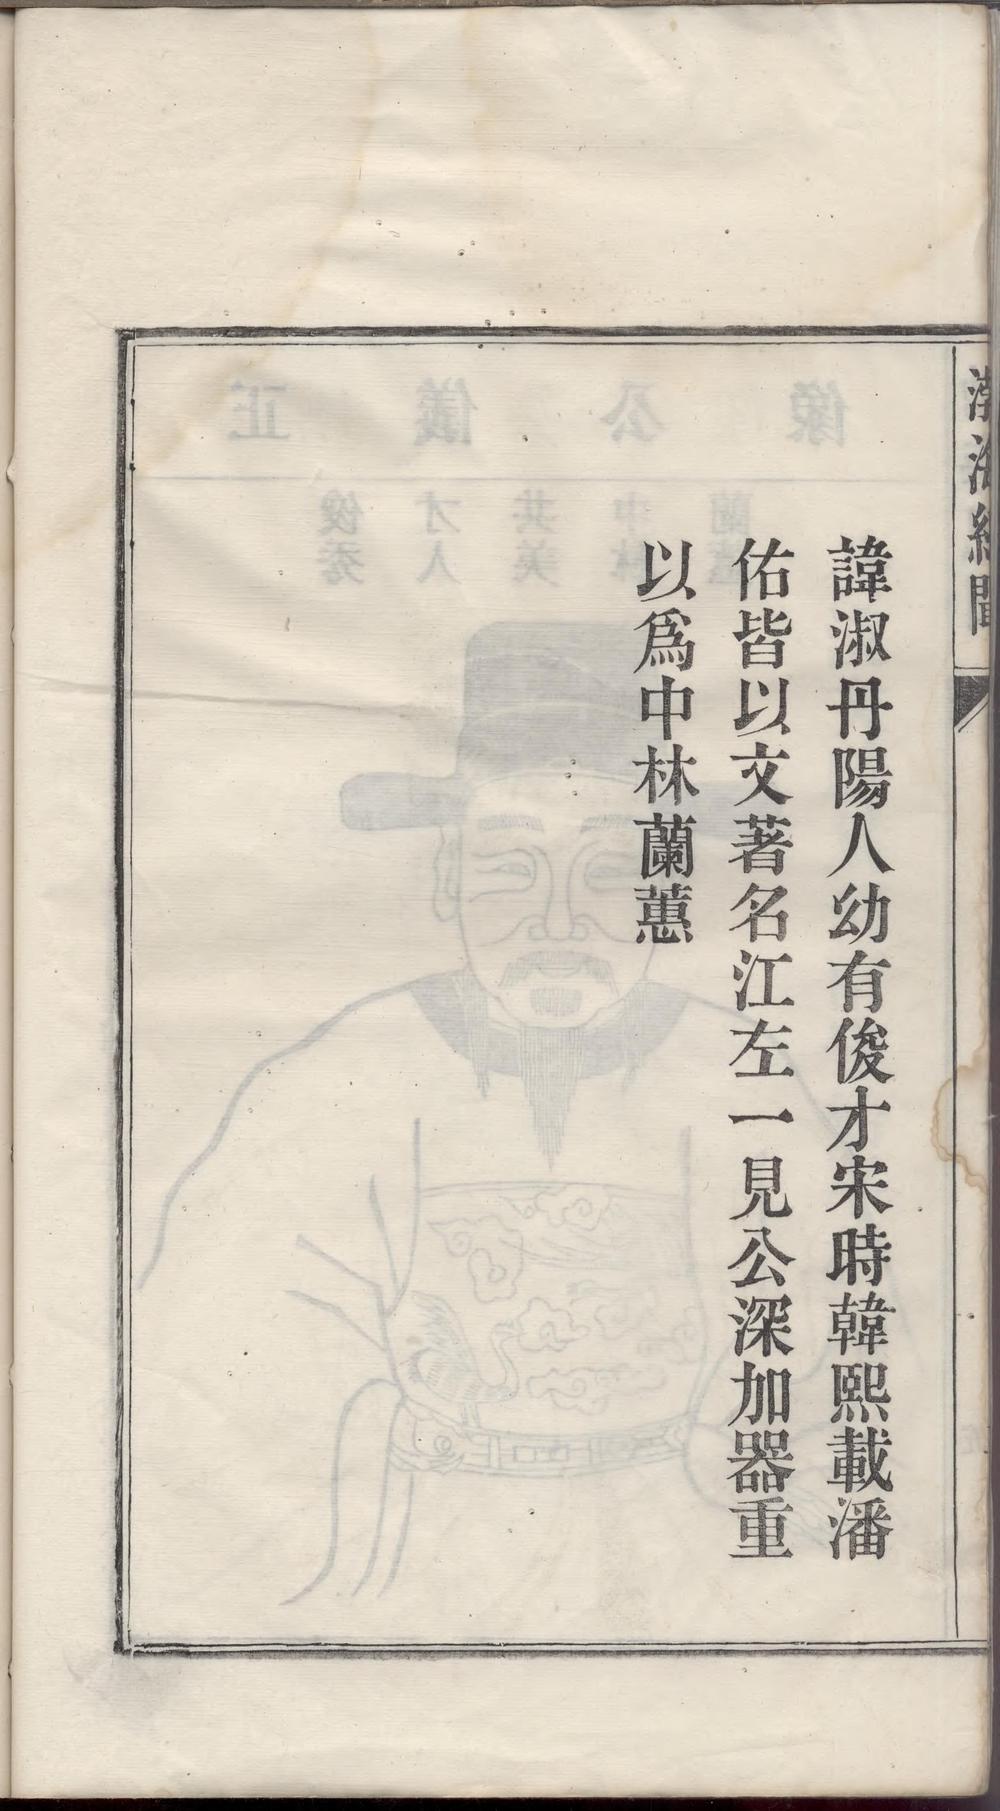 諱淑丹陽人幼有俊才宋時韓熙載潘
佑皆以文著名江左一見公深加器重
以爲中林蘭蕙